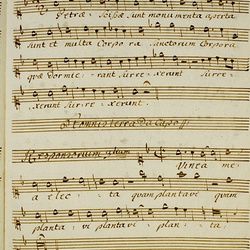 Petræ scissæ sunt monumenta aperta
sunt et multa Corpora Sanctorum Corpora
quæ dormierant surrexerunt surre-
xerunt surrexerunt.
omnis terra Da Capo
Responsorium
Vinea me
a elec ta quam plantavi quam
plantavi plantavi planta